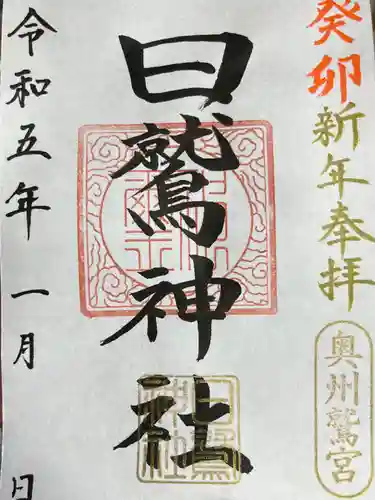 癸卯新年奉拝
奥州鷲宮
日鷲神社
日鷲
神社
令和五年 一月 日